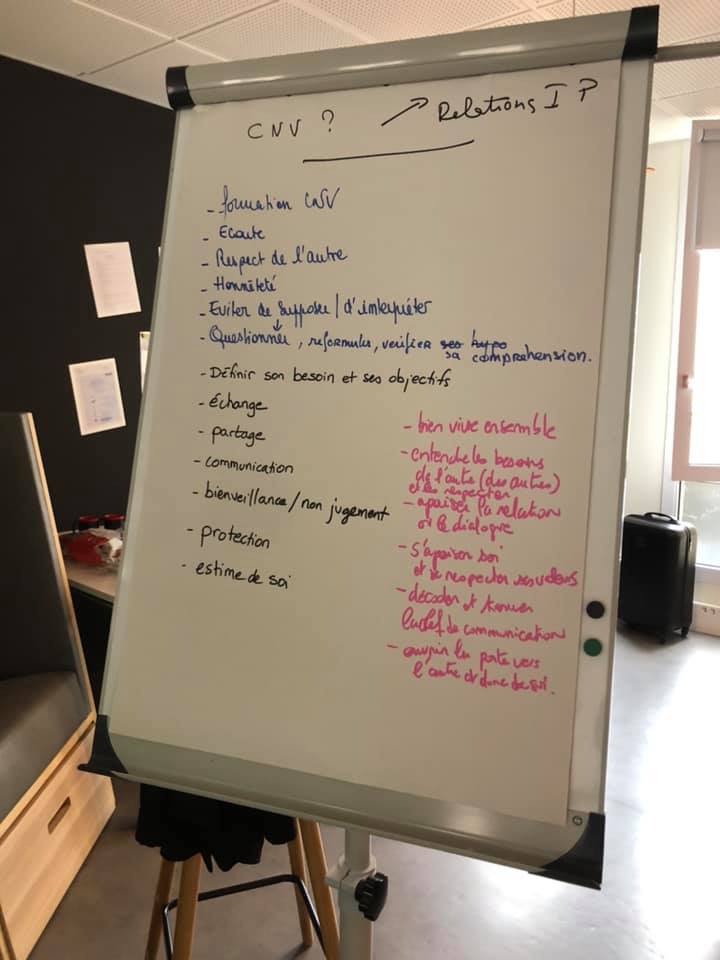 CNV ? → Relations I P
- formation CNV
- Ecoute
- Respect de l'autre
- Honnêteté
- Eviter de supposer / d'interpréter
↓
- Questionner, reformuler, verifier ses hypo
sa comprehension.
- Définir son besoin et ses objectifs
- échange
- partage
- communication
- bienveillance / non jugement
- protection
- estime de soi
- bien vivre ensemble
- entendre les besoins
de l'autre (des autres)
et les respecter
- apaiser la relation
et le dialogue
- s'apaiser soi
et se respecter ses valeurs
- décoder et trouver
la clef de communication
- ouvrir la porte vers
l'autre et donc de soi.